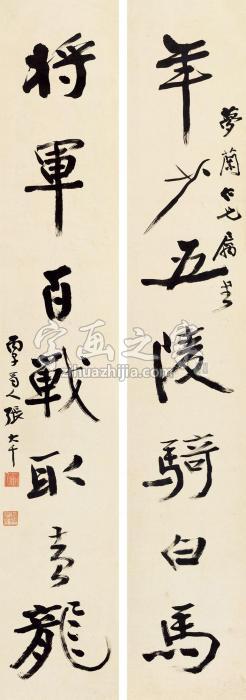 夢蘭仁兄屬書
年少五陵騎白馬
將軍百戰取黃龍
丙子蜀人張大千
字画之家
zihuazhijia.com